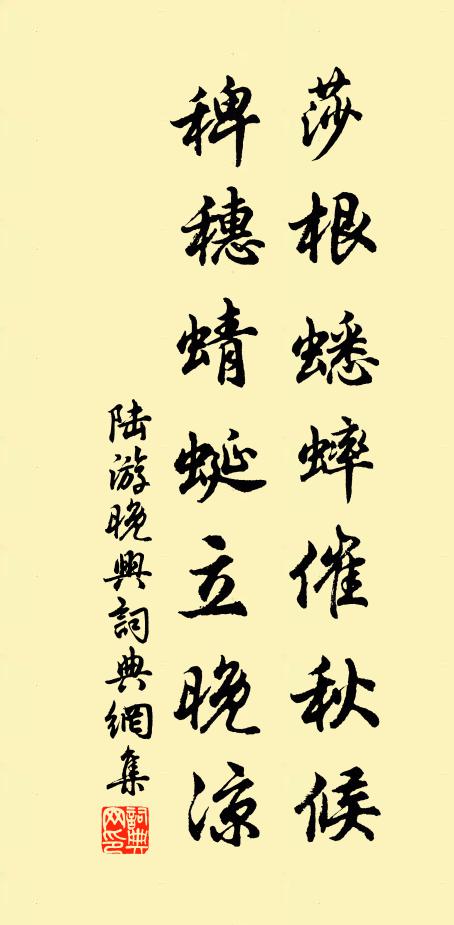 莎根蟋蟀催秋候
稗穗蜻蜓立晚凉
陆游晚興詞典網集
詞典網印